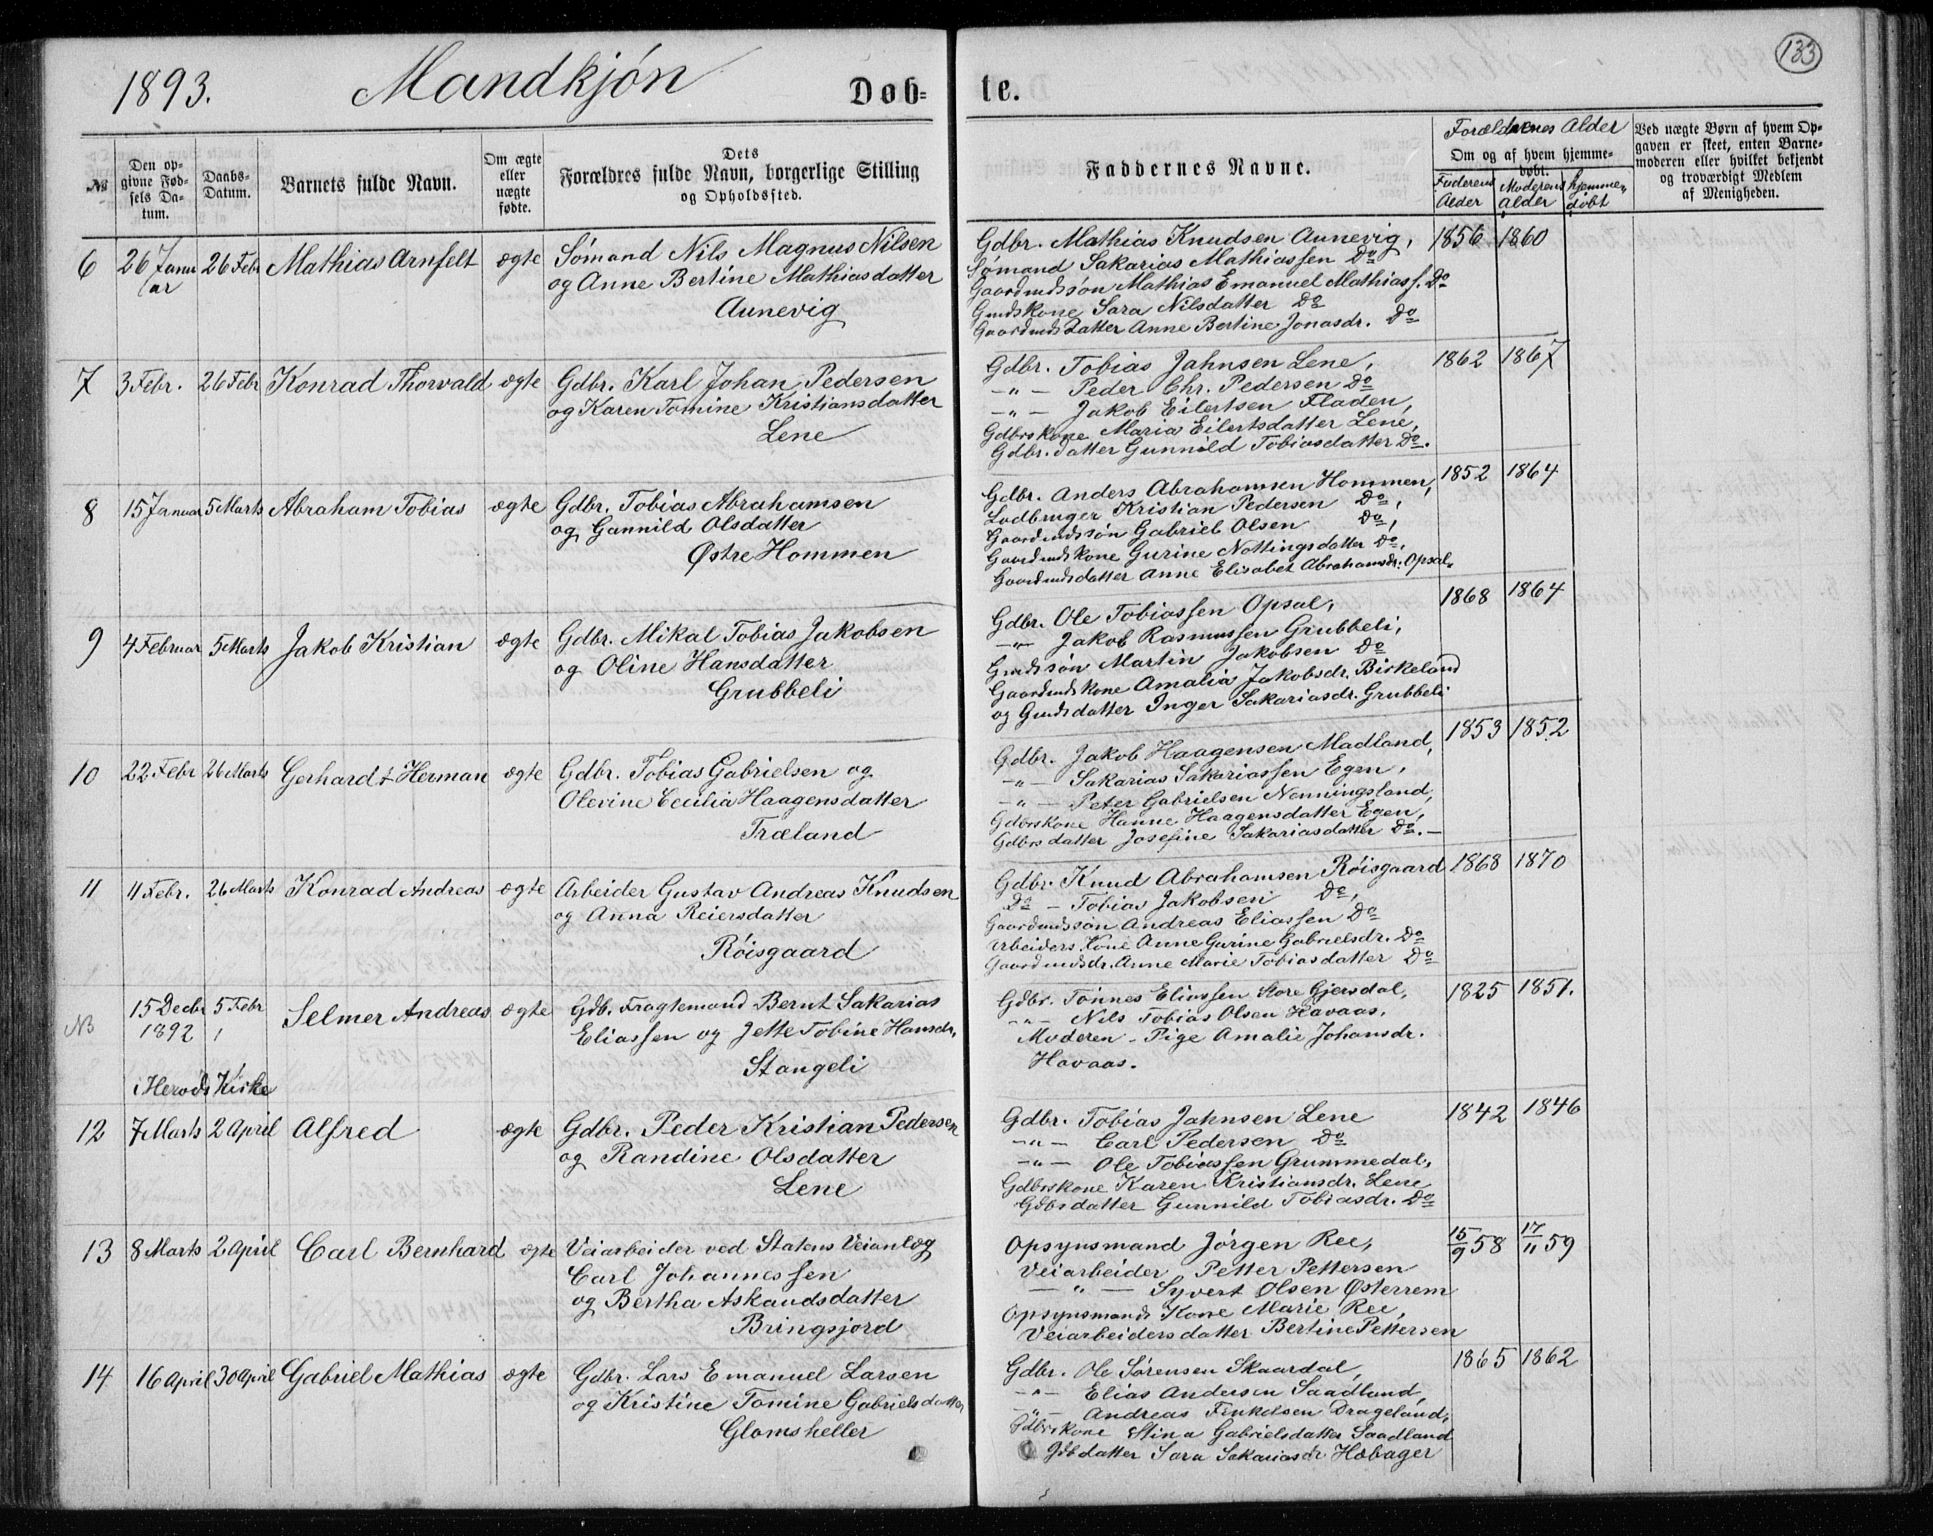 133
1893. Mandkjøn Døb= te.
№
Den op-
givne Fød-
sels Da-
tum.
Daabs-
Datum.
Barnets fulde Navn.
Om ægte
eller
uægte
fødte.
Dets
Forældres fulde Navn, borgerlige Stilling
og Opholdssted.
Faddernes Navne.
Forældrenes Alder
Om og af hvem hjemme-
døbt.
Faderens
Alder
Moderens
Alder
hjemme-
døbt
Ved uægte Børn af hvem Op-
gaven er skeet, enten Barne-
moderen eller hvilket bekjendt
og troværdigt Medlem
af Menigheden.
6
26 Janu
ar
26 Febr
Mathias Arnfelt
ægte
Sømand Nils Magnus Nilsen
og Anne Bertine Mathiasdatter
Aunevig
Gdbr. Mathias Knudsen Aunevig,
Sømand Sakarias Mathiassen Do
Gaardmdssøn Mathias Emanuel Mathiass. Do
Gmdskone Sara Nilsdatter Do
Gaardmds Datter Anne Bertine Jonasdr. Do
1856 1860
7
3 Febr.
26 Febr
Konrad Thorvald
ægte
Gdbr. Karl Johan Pedersen
og Karen Tomine Kristiansdatter
Lene
Gdbr. Tobias Jahnsen Lene,
-"- Peder Chr. Pedersen Do
-"- Jakob Eilertsen Fladen,
Gdbrskone Maria Eilertsdatter Lene,
Gdbr. datter Gunnild Tobiasdatter Do.
1862 1867
8
15 Januar
5 Marts
Abraham Tobias
ægte
Gdbr. Tobias Abrahamsen
og Gunnild Olsdatter
Østre Hommen
Gdbr. Anders Abrahamsen Hommen,
Lodbruger Kristian Pedersen Do,
Gaardmdssøn Gabriel Olsen Do,
Gaardmdskone Gurine Nottingsdatter Do,
Gaardmdsdatter Anne Elisabet Abrahamsdr. Opsal.
1852 1864
9
4 Februar
5 Marts
Jakob Kristian
ægte
Gdbr. Mikal Tobias Jakobsen
og Oline Hansdatter
Grubbeli
Gdbr. Ole Tobiassen Opsal,
-"- Jakob Rasmussen Grubbeli,
Gmdssøn Martin Jakobsen Do
Gaardmdskone Amalia Jakobsdr. Birkeland
og Gmdsdatter Inger Sakariasdr. Grubbeli
1868 1864
10
22 Febr
26 Marts
Gerhard Herman
ægte
Gdbr. Tobias Gabrielsen og
Olevine Cecilia Haagensdatter
Træland
Gdbr. Jakob Haagensen Madland,
-"- Sakarias Sakariassen Egen,
-"- Peter Gabrielsen Nenningsland,
Gdbrskone Hanne Haagensdatter Egen,
Gdbrsdatter Josefine Sakariasdatter Do.-
1853 1852
11
11 Febr.
26 Marts
Konrad Andreas
ægte
Arbeider Gustav Andreas Knudsen
og Anna Reiersdatter
Røisgaard
Gdbr. Knud Abrahamsen Røisgaard
Do - Tobias Jakobsen Do,
Gaardmdssøn Andreas Eliassen Do
Arbeiders Kone Anne Gurine Gabrielsdr. Do
Gaardmdsdr. Anne Marie Tobiasdatter Do
1868 1870
NB
15 Decbr
1892
5 Febr
Selmer Andreas
ægte
Gdb. Fragtemand Bernt Sakarias
Eliassen og Jette Tobine Hansdr.
Stangeli
i Herods Kirke
Gdbr. Tønnes Eliassen Store Gjersdal,
-"- Nils Tobias Olsen Havaas,
Moderen - Pige Amalie Johansdr.
Havaas.
1825 1851.
12
7 Marts
2 April
Alfred
ægte
Gdbr. Peder Kristian Pedersen
og Randine Olsdatter
Lene
Gdbr. Tobias Jahnsen Lene
-"- Carl Pedersen Do
-"- Ole Tobiassen Grummedal,
Gdbrskone Karen Kristiansdr. Lene
Gdbsdatter Gunnild Tobiasdr. Do
1842 1846
13
8 Marts
2 April
Carl Bernhard
ægte
Veiarbeider ved Statens Veianlæg
Carl Johannessen
og Bertha Askaudsdatter
Bringsjord
Opsynsmand Jørgen Ree,
Veiarbeider Petter Pettersen
-"- Syvert Olsen Østerrem
Opsynsmands Kone Marie Ree,
Veiarbeiders datter Bertine Pettersen
15/9 58 17/11 59
14
16 April
30 April
Gabriel Mathias
ægte
Gdbr. Lars Emanuel Larsen
og Kristine Tomine Gabrielsdatter
Glomsheller
Gdbr. Ole Sørensen Skaardal,
-"- Elias Andersen Saadland,
-"- Andreas Finkelsen Drageland,
Gdbrskone Stina Gabrielsdatter Saadland
Gdbdatter Sara Sakariasdr Hæbager
1865 1862